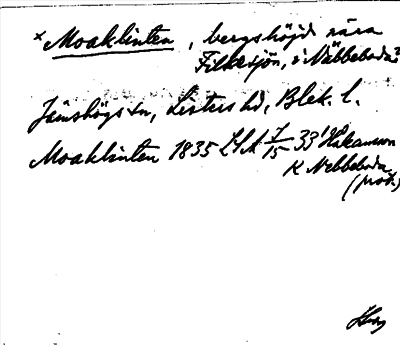 × Moaklinten, bergshöjd nära
Filkesjön, i Näbbeboda?
Jämshögs sn, Listers hd, Blek. l.
Moaklinten 1835 LSA 7/15 33 Håkansson
K Nebbeboda
(prot.)